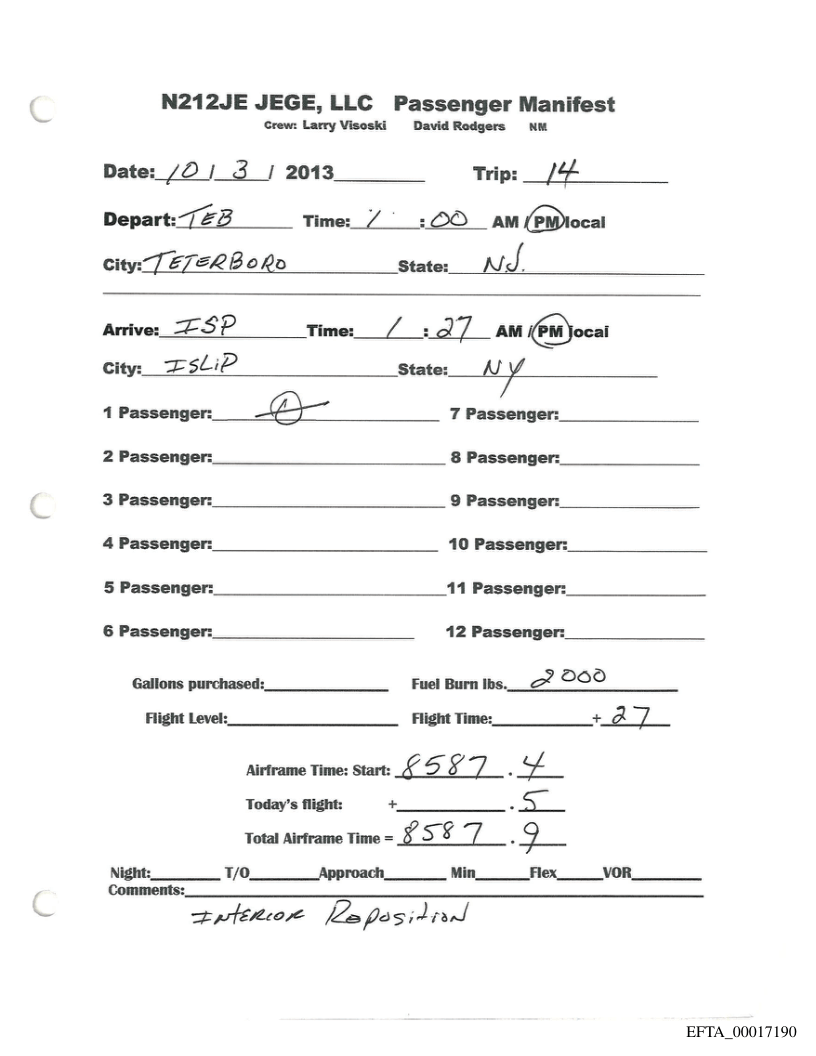 N212JE JEGE, LLC Passenger Manifest
Crew: Larry Visoski David Rodgers NM
Date: 10 / 3 / 2013 Trip: 14
Depart: TEB Time: 1 : 00 AM / PM local
City: TETERBORO State: NJ.
Arrive: ISP Time: 1 : 27 AM / PM local
City: ISLiP State: NY
1 Passenger: 7 Passenger:
2 Passenger: 8 Passenger:
3 Passenger: 9 Passenger:
4 Passenger: 10 Passenger:
5 Passenger: 11 Passenger:
6 Passenger: 12 Passenger:
Gallons purchased: Fuel Burn lbs. 2000
Flight Level: Flight Time: + 27
Airframe Time: Start: 8587 . 4
Today's flight: + . 5
Total Airframe Time = 8587 . 9
Night: T/O Approach Min Flex VOR
Comments:
INTERIOR Reposition
EFTA_00017190